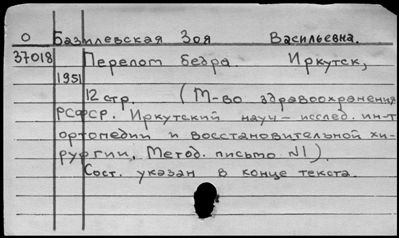 О Базилевская Зоя Васильевна.
37018 Перелом бедра Иркутск,
1951
12 стр. (М-во здравоохранения
РСФСР. Иркутский науч-исслед. ин-т
ортопедии и восстановительной хи-
рургии, Метод. письмо №1).
Сост. указан в конце текста.